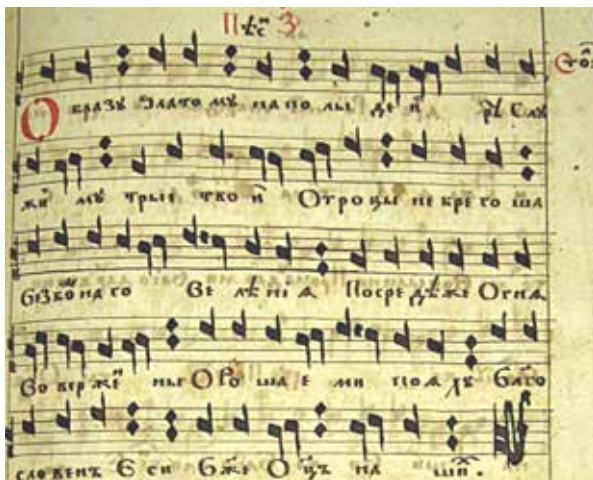 Пѣс҃ З
Образу Златому на поли деи рѣ Слу
жи му трые твои Отроцы не брегоша
Безбо наго Велѣнїѧ Посредѣ же Огнѧ
Вовержены Орошаеми поѧху Бл҃го
словенъ Еси Бж҃е Оц҃ъ наши҃.